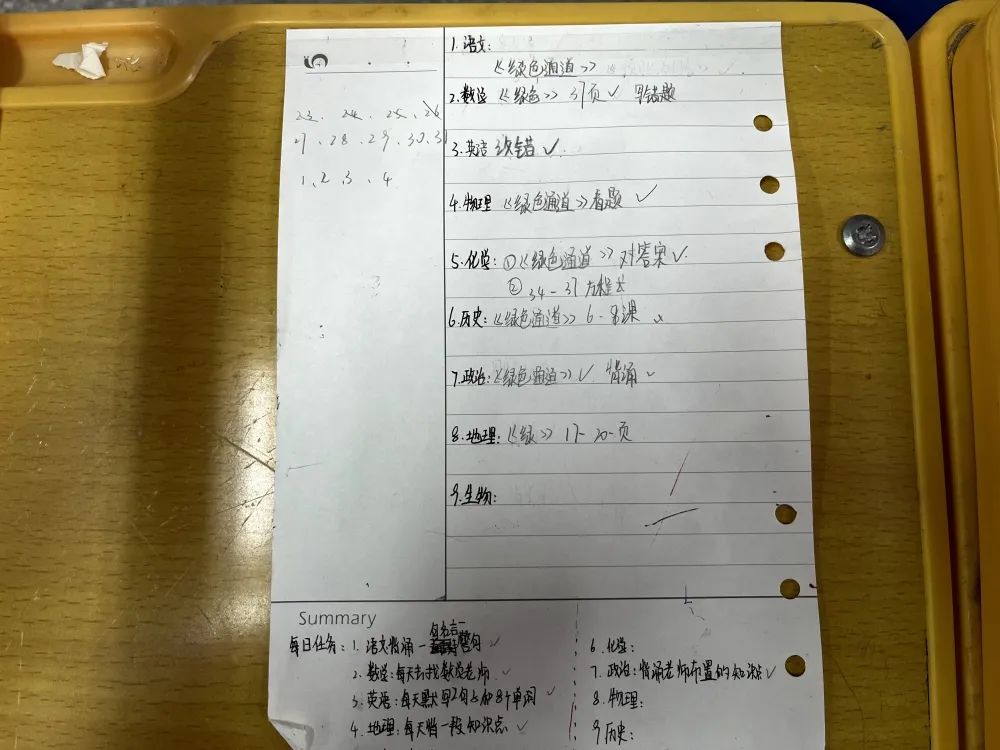 5
23、24、25、26
27、28、29、30、31
1、2、3、4
1.语文:
《绿色通道》
2.数学 《绿色》37页✓ 写错题
3.英语 改错✓
4.物理《绿色通道》看题✓
5.化学:①《绿色通道》对答案✓
②34-37方程式
6.历史:《绿色通道》6-8课
7.政治:《绿色通道》✓ 背诵✓
8.地理:《绿》17-20页
9.生物:
Summary
每日任务:1.语文背诵一句名言警句✓
2.数学:每天去找数学老师✓
3.英语:每天默写2句与8个单词✓
4.地理:每天背一段知识点✓
6.化学:
7.政治:背诵老师布置的知识点✓
8.物理:
9.历史: